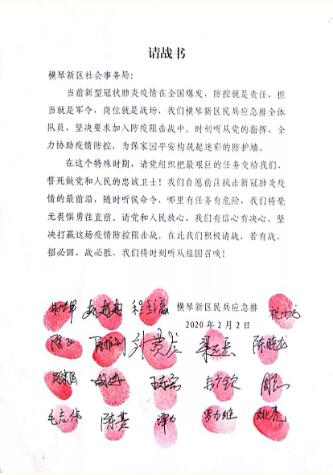 请战书
横琴新区社会事务局：
当前新型冠状肺炎疫情在全国爆发，防控就是责任，担
当就是军令，岗位就是战场，我们横琴新区民兵应急排全体
队员，坚决要求加入防疫阻击战中。时刻听从党的指挥，全
力协助疫情防控，为保家园平安构筑起迷彩的防护墙。
在这个特殊时期，请党组织把最艰巨的任务交给我们，
誓死做党和人民的忠诚卫士！我们自愿前往抗击新冠肺炎疫
情的最前沿，随时听候命令，哪里有任务有危险，我们将毫
无畏惧勇往直前，请党和人民放心，我们有信心有决心，坚
决打赢这场疫情防控阻击战。在此我们积极请战，若有战，
招必回，战必胜，我们将时刻听从祖国召唤！
横琴新区民兵应急排
2020年2月2日